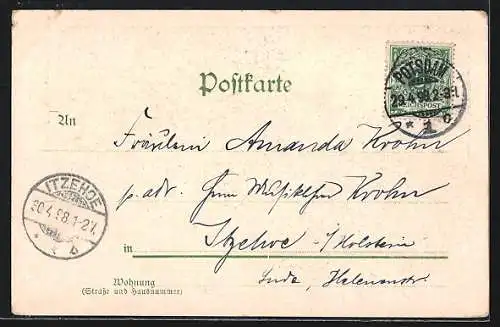 Postkarte
POTSDAM
29.4.98.2-3N.
* 1 b
REICHSPOST
An
Fräulein Amanda Krohn
p. adr. Herrn Musiklehrer Krohn
ITZEHOE
30.4.98.1-2N.
* b
in Itzehoe - i/Holstein
Wohnung
(Straße und Hausnummer)
Helenenstr.